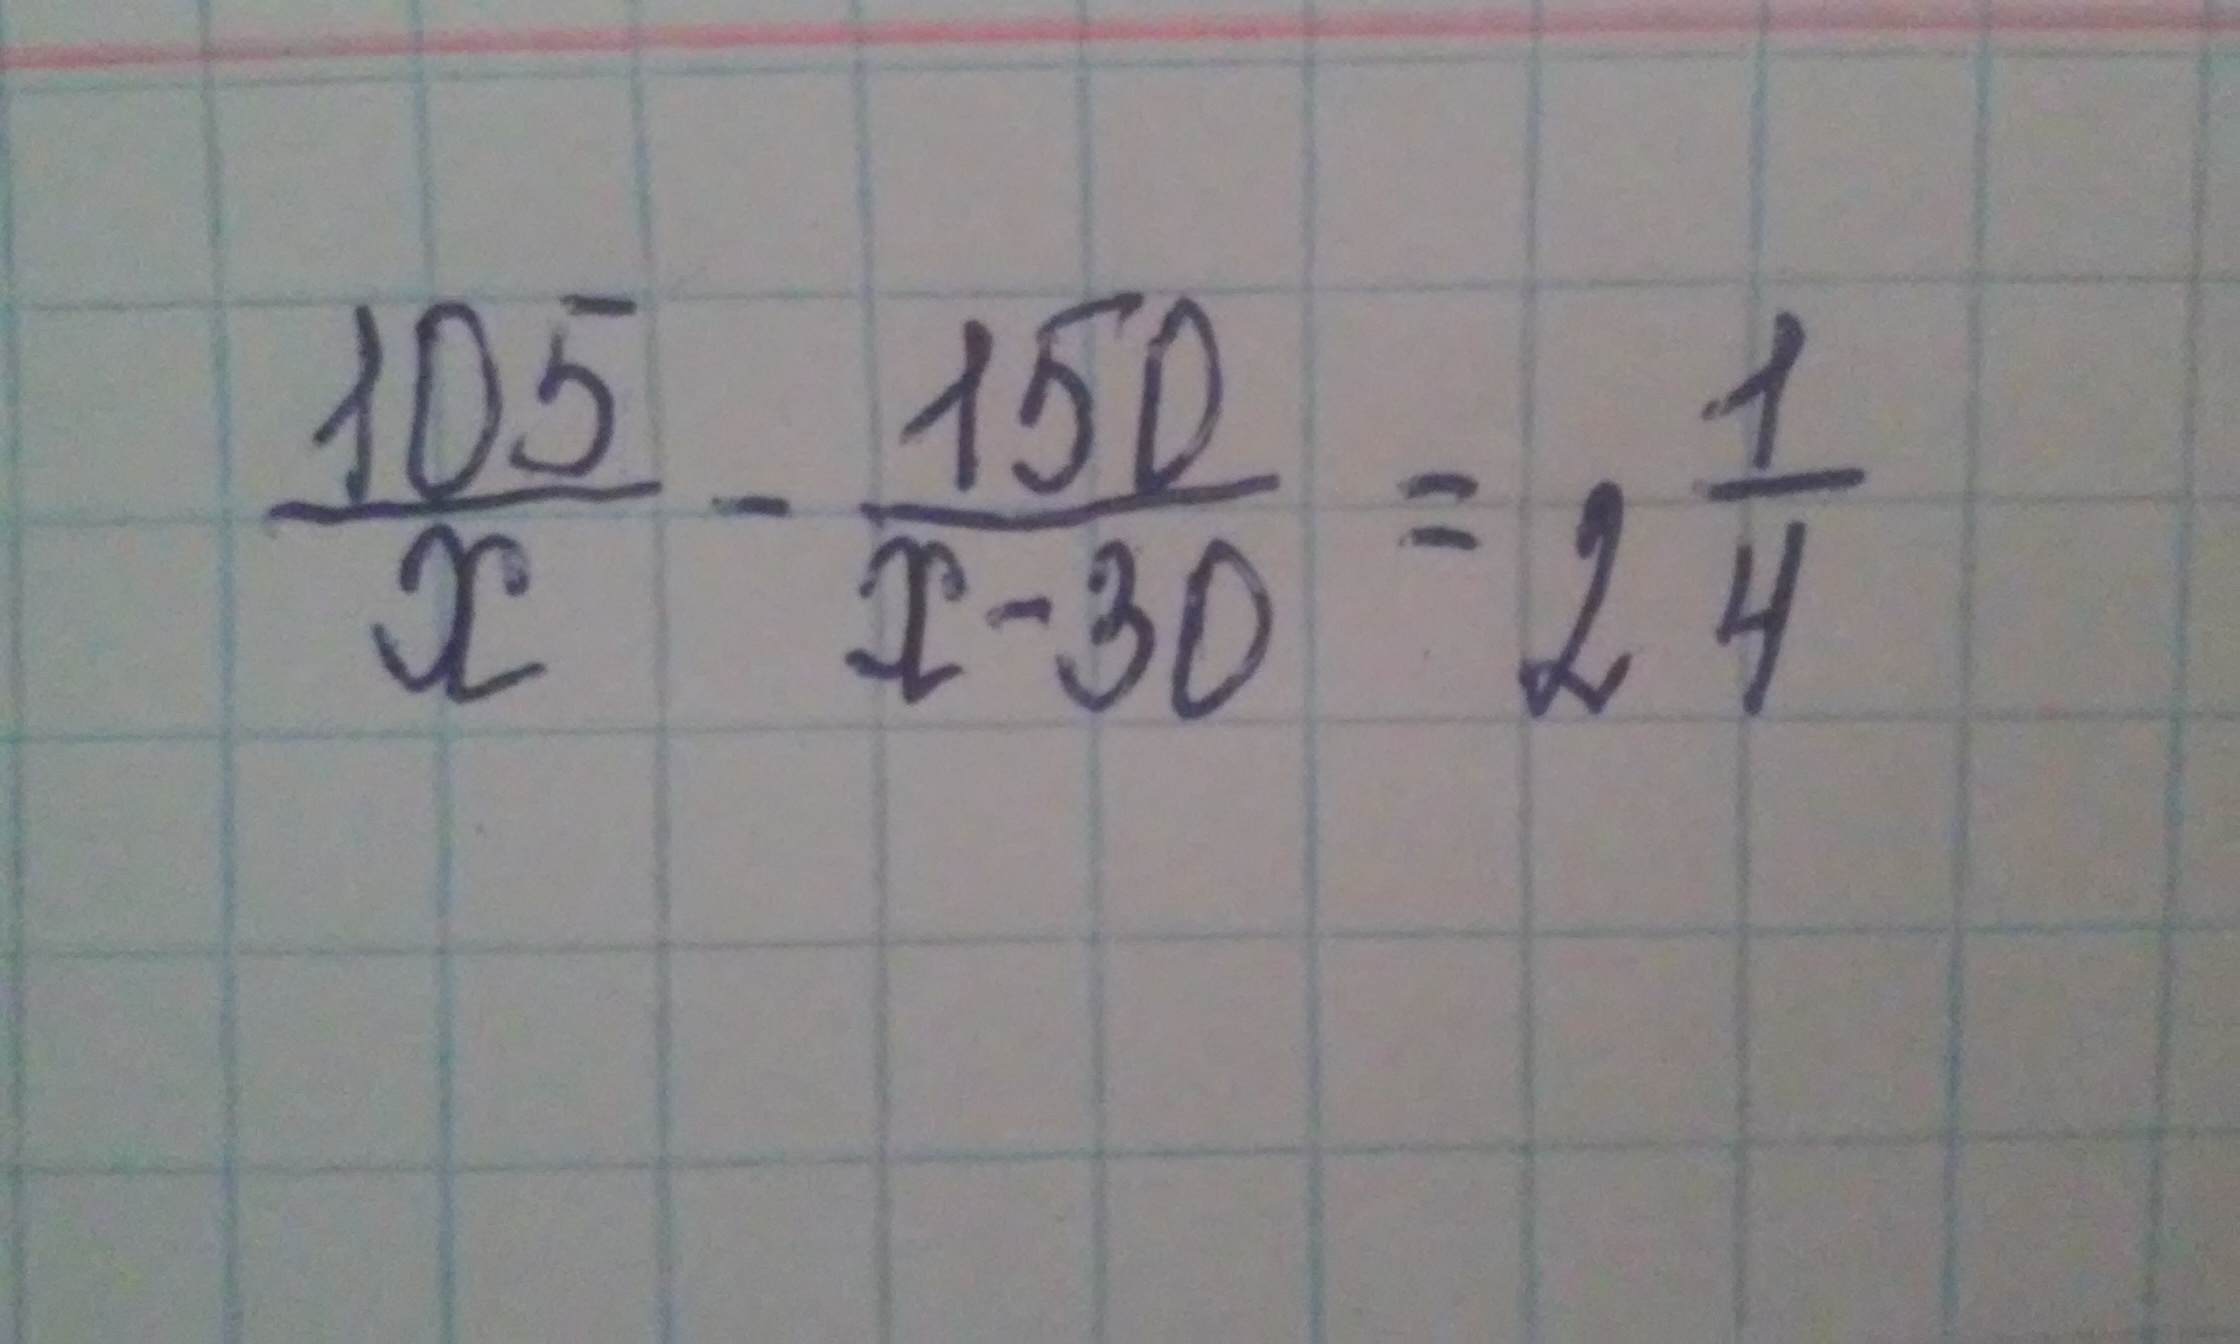 105/x - 150/x-30 = 2 1/4